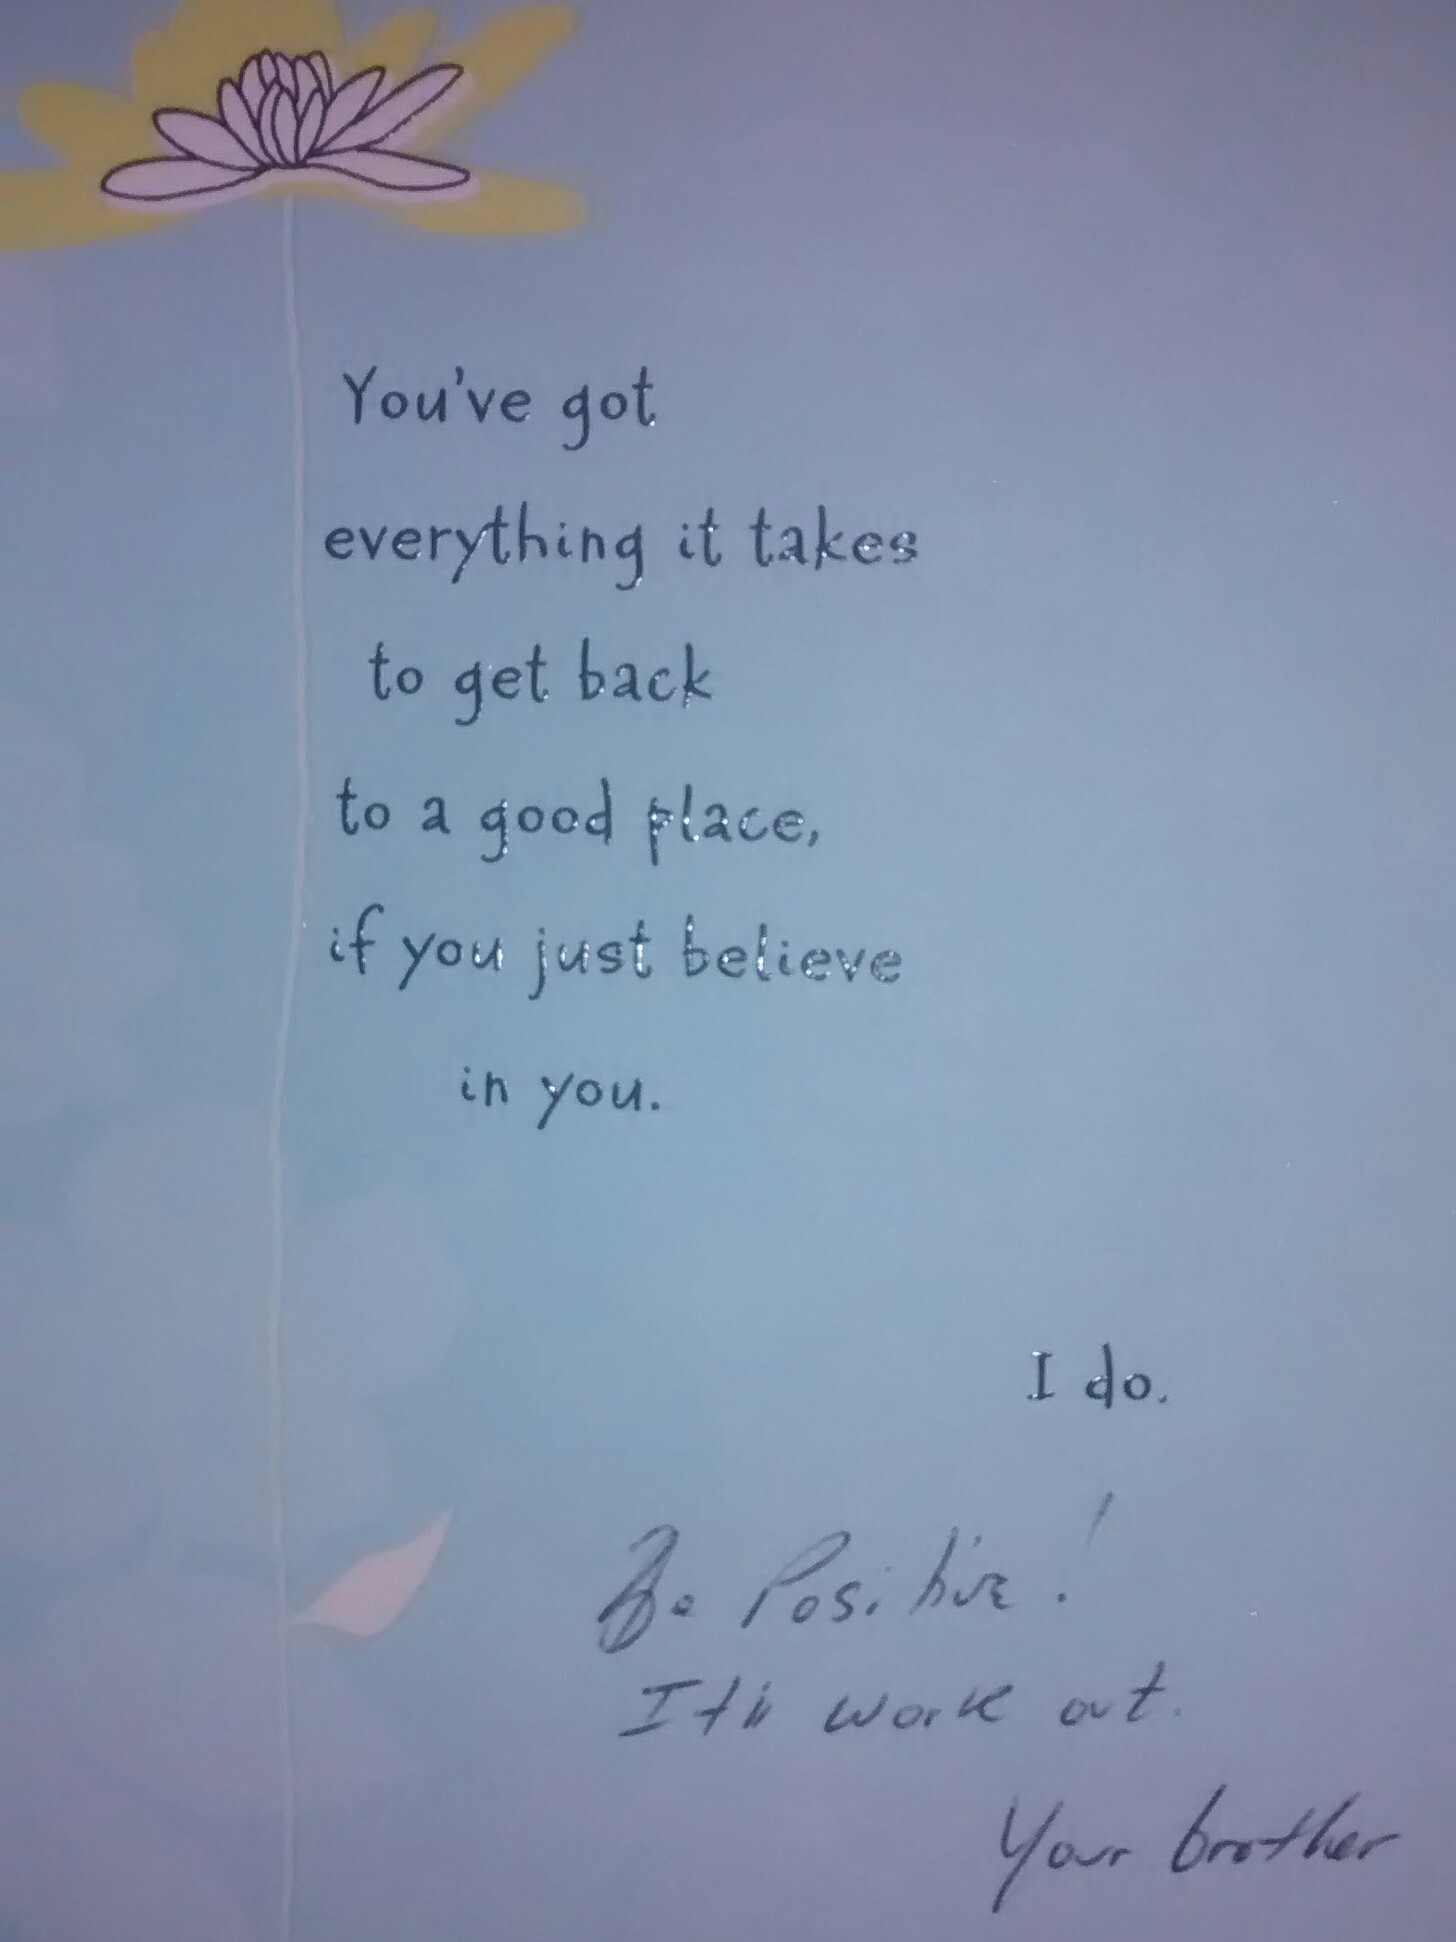 You've got
everything it takes
to get back
to a good place,
if you just believe
in you.
I do.
Be Positive!
It'll work out.
Your brother